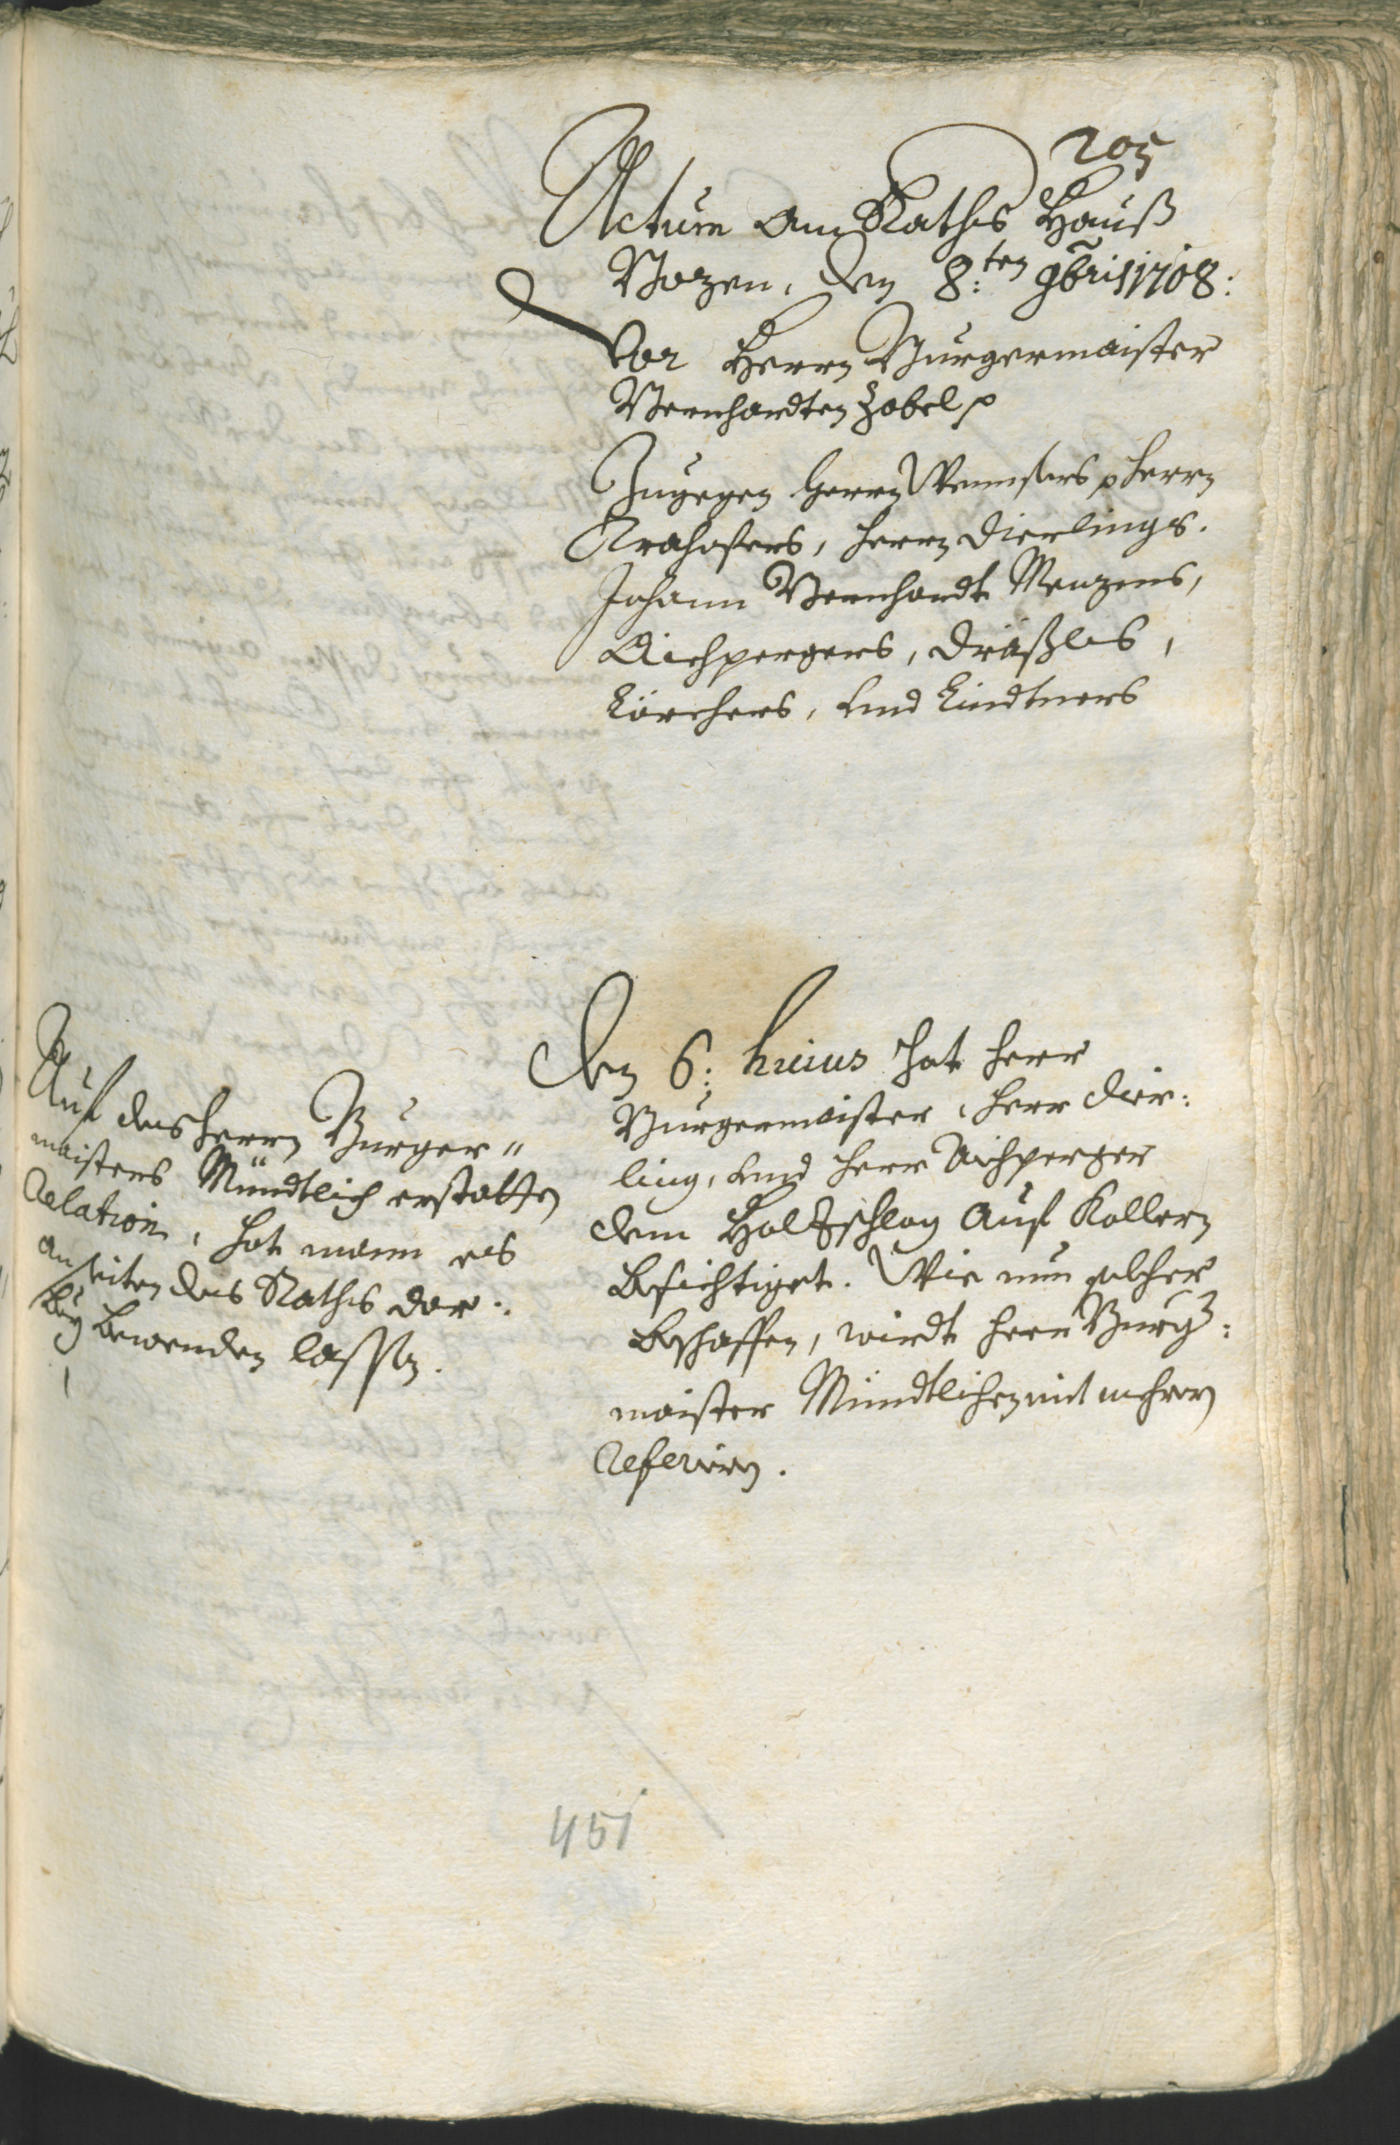 205
Actum am Raths Hauß
Bozen, den 8:ten 9bris 1708:
Vor Herrn Burgermaister
Bernhardten Zobel p
Zugegen Herrn Wenssers p Herrn
Krahofers, Herrn Dierlings.
Johann Bernhardt Menzens,
Aichpergers, Dräxls,
Lärchers, und Lindtners
Den 6: huius hat Herr
Burgermaister, Herr Dier:
ling, und Herr Aichperger
dem Holzschlag auf Kollern
besichtiget. Wie nun solcher
beschaffen, wirdt Herr Burg:
maister Mündtlichen mit mehrern
Referiren.
Auf des Herrn Burger"
maisters Mündtlich erstatten
Relation, hat mann es
an seiten des Raths dar:
bey bewenden lassen.
451